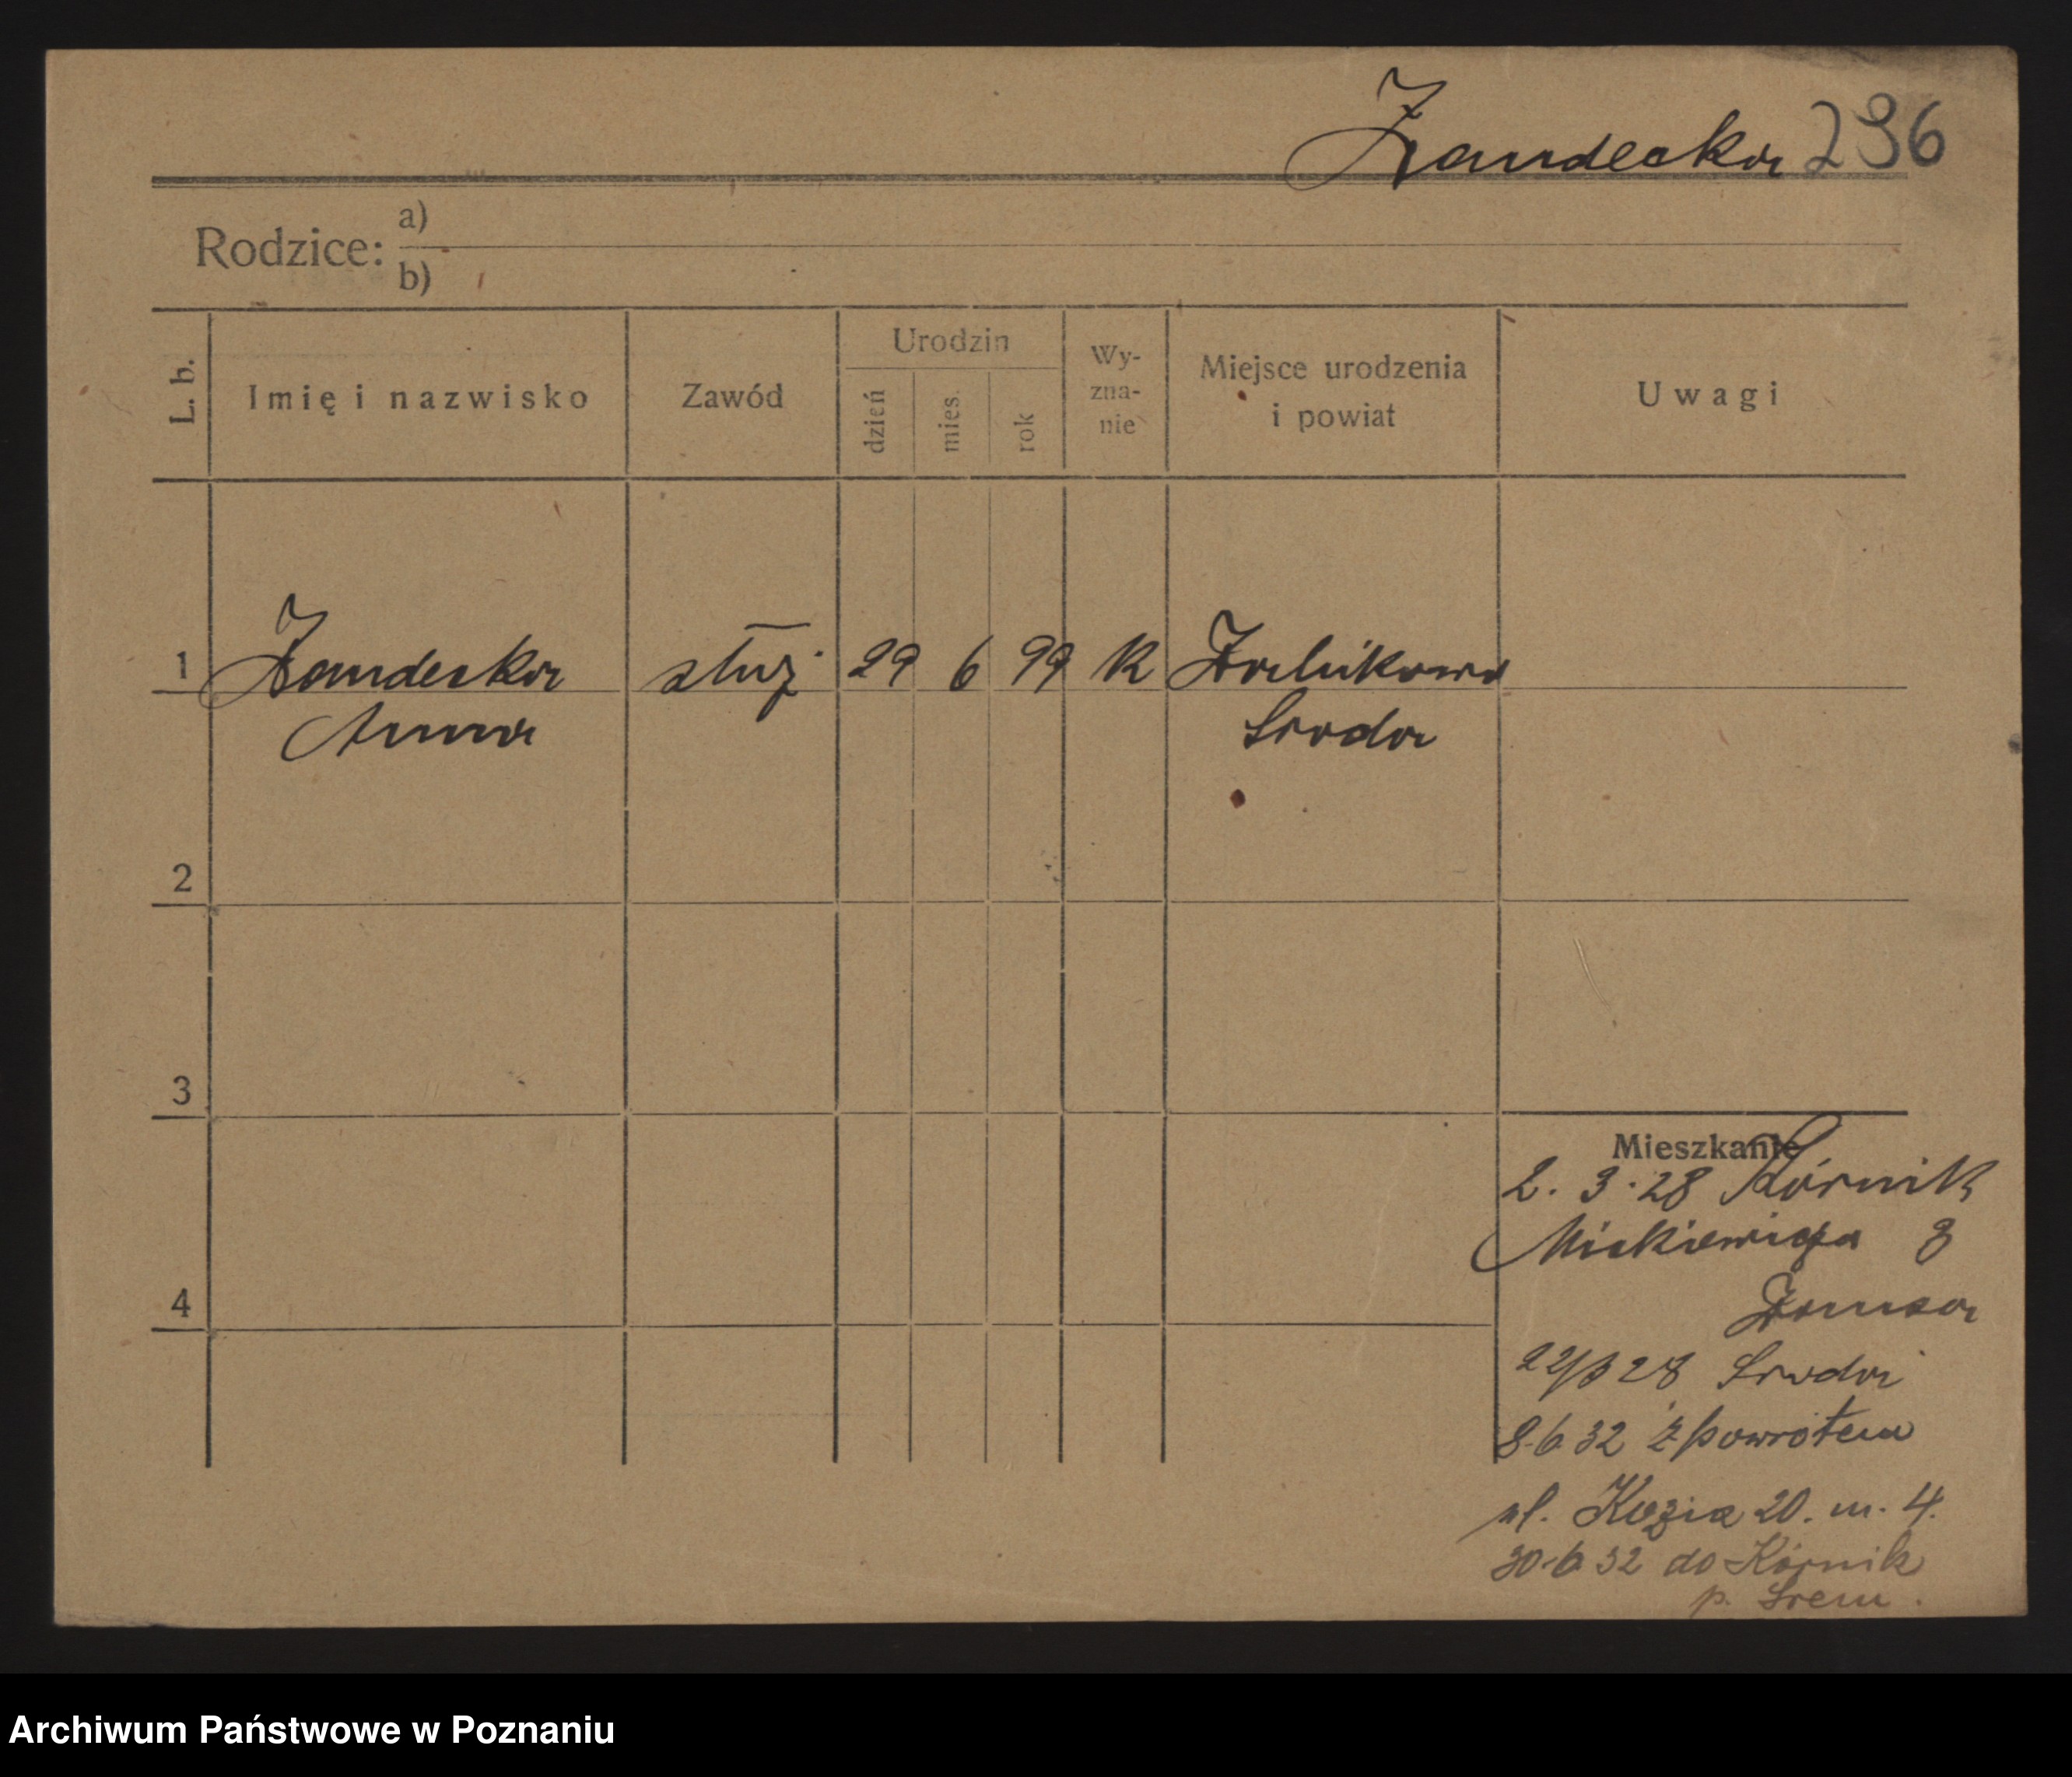 Zandecka 296
Rodzice: a)
b)
L. b. Imię i nazwisko Zawód Urodzin dzień mies. rok Wyznanie Miejsce urodzenia i powiat Uwagi
1 Zandecka służ 29 6 99 K
Anna Sroda
2
3
Mieszkanie
2. 3. 28 Kórnik
Mickiewicza 3
4
28 Sroda
8.6 32 z powrotem
ul. Kozia 20. m. 4.
30.6 32 do Kórnik
p. Srem.
Archiwum Państwowe w Poznaniu